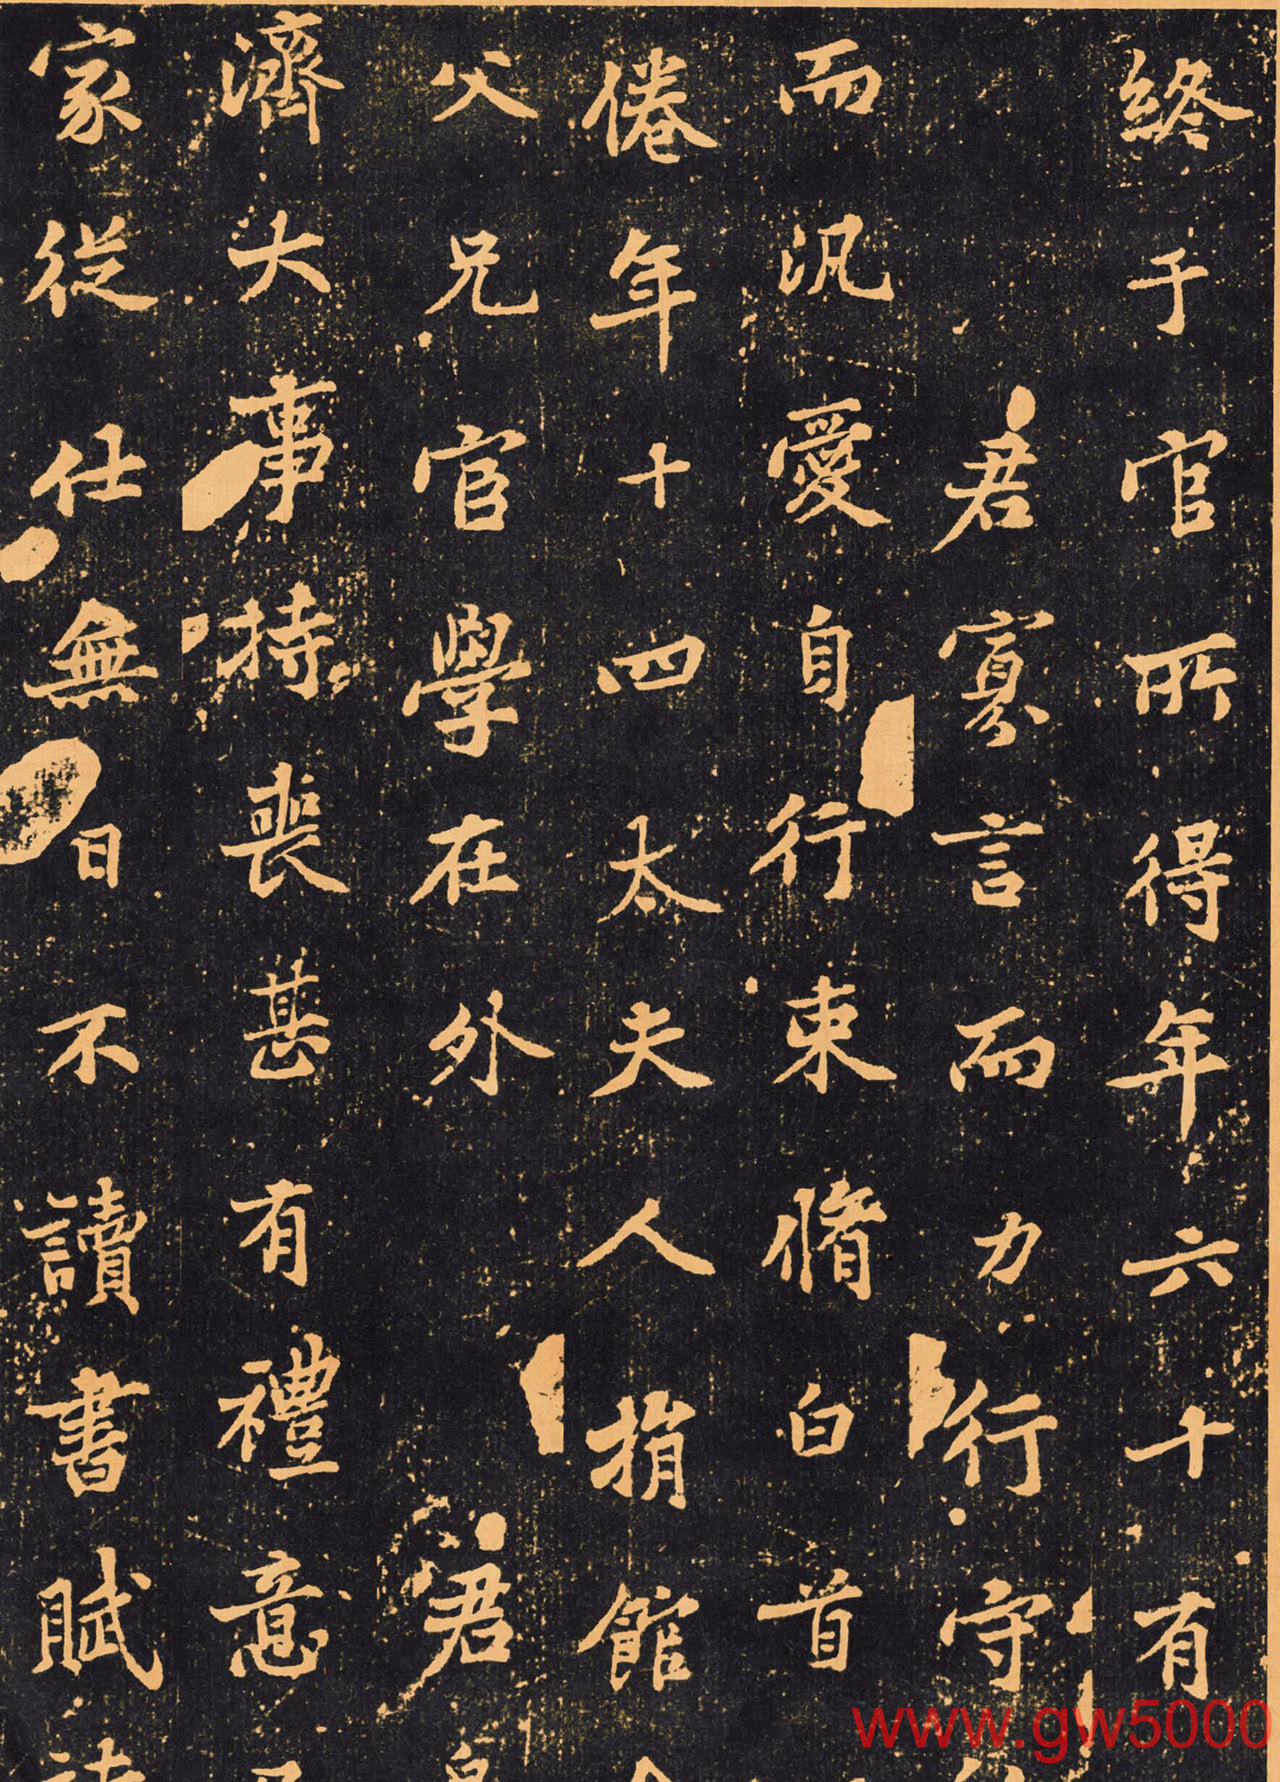 終于官所得年六十有
君寡言而力行守
而汎愛自行束脩白首
倦年十四太夫人捐館
父兄官學在外君
濟大事持喪甚有禮意
家從仕無日不讀書賦
www.gw5000